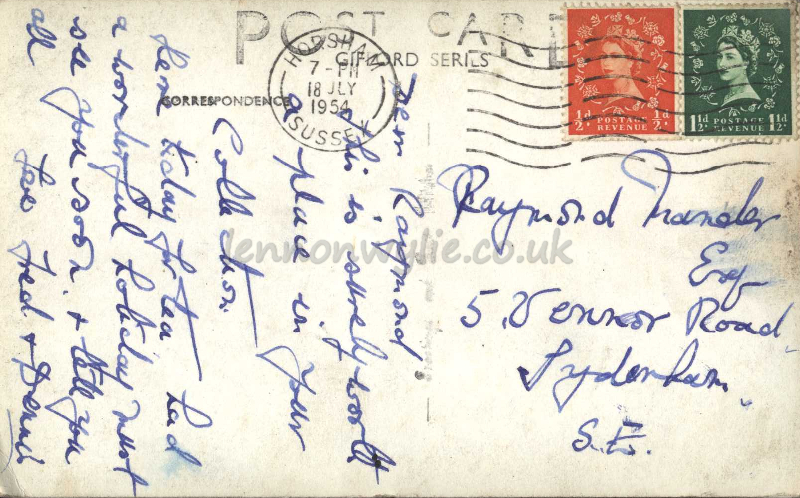 POST CARD
GIFFORD SERIES
CORRESPONDENCE
HORSHAM
7 - PM
18 JLY
1954
SUSSEX
½d POSTAGE REVENUE ½d
1½d POSTAGE REVENUE 1½d
Dear Raymond
this is surely worth
a place in your
Collection
Here today for tea had
a wonderful holiday must
see you soon & tell you
all love Fred & Dennis
Raymond Nander
Esq
5. Vennor Road
Sydenham.
S.E.
lennonwylie.co.uk